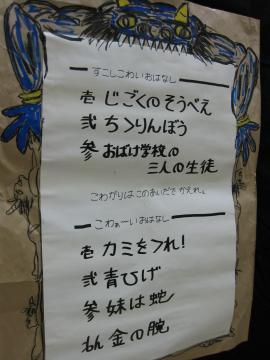 すこしこわいおはなし
壱 じごくのそうべえ
弐 ちいりんぼう
参 おばけ学校の
三人の生徒
こわがりはこのあいだにかえれ。
こわぁーいおはなし
壱 カミをつれ!
弐 青ひげ
参 妹は蛇
わん 金の腕